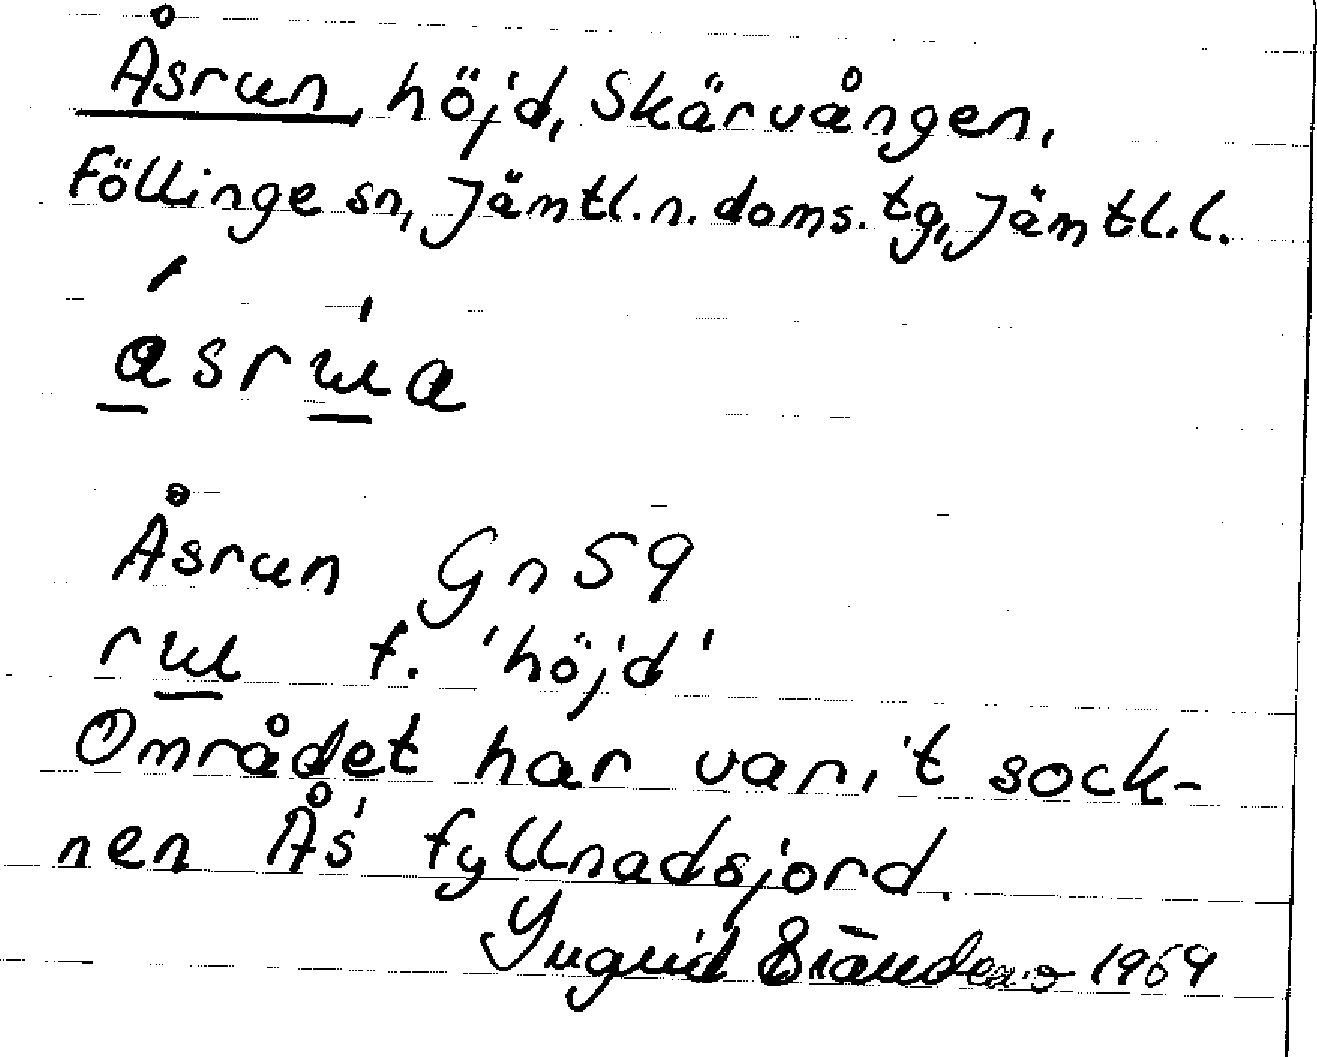 Åsrun, höjd, Skärvången,
Föllinge sn, Jämtl.n.doms.tg, Jämtl.l.
Åsrun Gn 59
f. 'höjd'
Området har varit sock-
nen Ås' fyllnadsjord.
Ingrid 1969